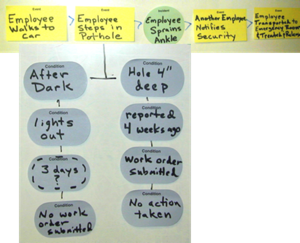 Event
Employee
Walks to
Car
Event
Employee
Steps in
Pothole
Incident
Employee
Sprains
Ankle
Event
Another Employee
Notifies
Security
Event
Employee
Transported to
Emergency Room
& Treated
Condition
After
Dark
Condition
lights
out
Condition
3 days
?
Condition
No work
order
submitted
Condition
Hole 4"
deep
Condition
reported
4 weeks ago
Condition
Work order
submitted
Condition
No action
taken